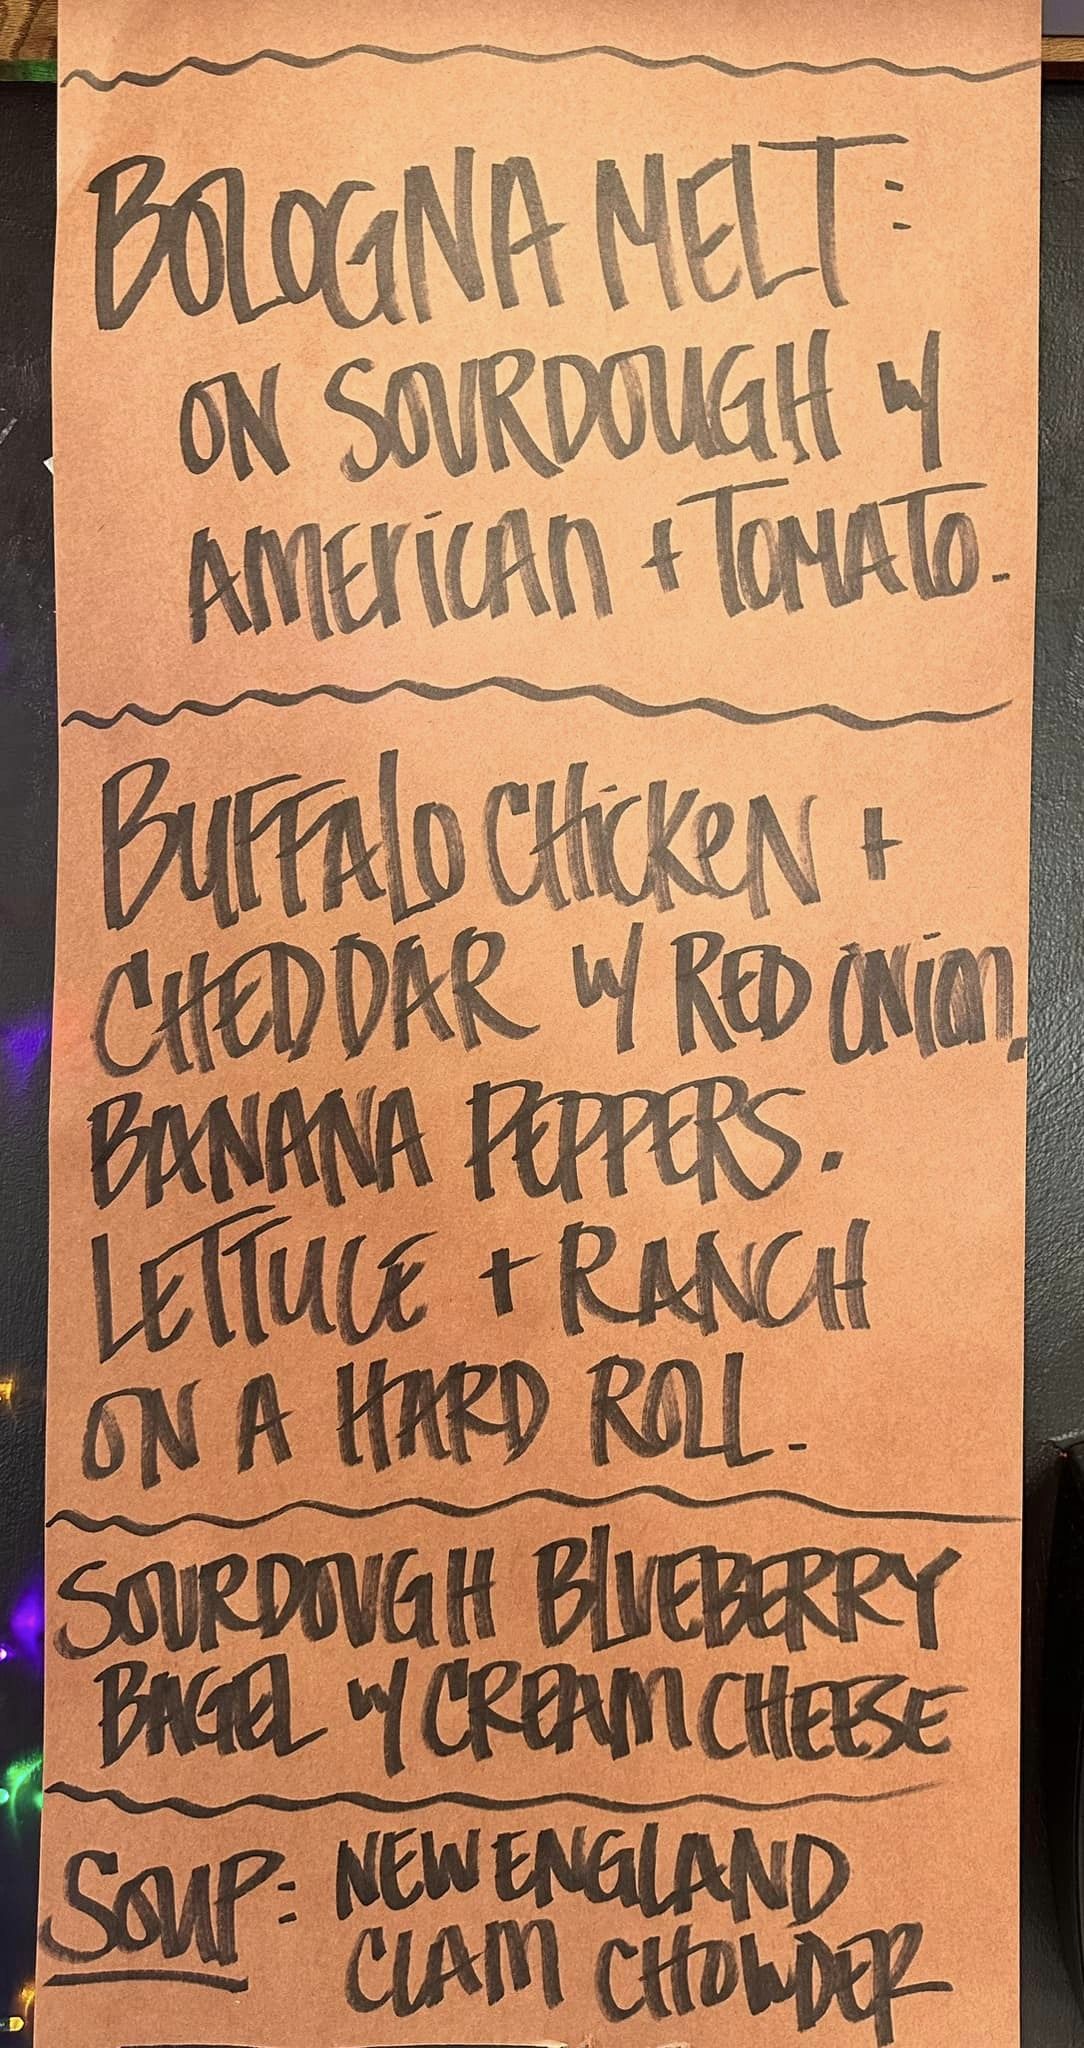 BOLOGNA MELT:
ON SOURDOUGH w/
AMERICAN + TOMATO.
BUFFALO CHICKEN +
CHEDDAR w/ RED ONION,
BANANA PEPPERS.
LETTUCE + RANCH
ON A HARD ROLL.
SOURDOUGH BLUEBERRY
BAGEL w/ CREAM CHEESE
SOUP: NEW ENGLAND
CLAM CHOWDER